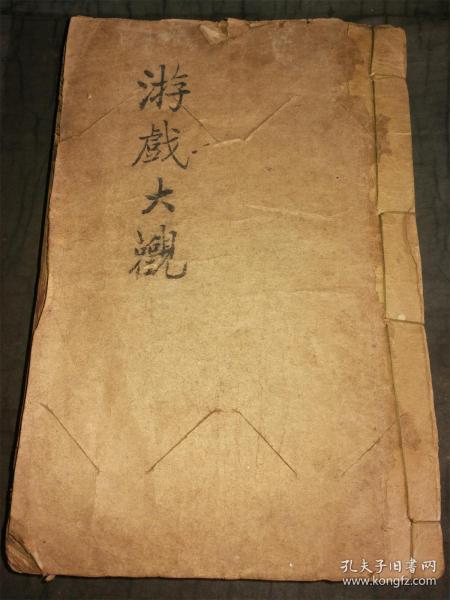 游戲大觀
孔夫子旧书网
www.kongfz.com